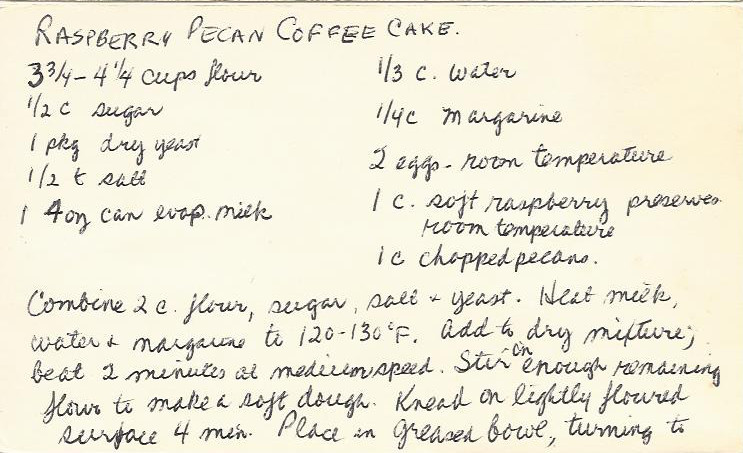 RASPBERRY PECAN COFFEE CAKE.
3 3/4 - 4 1/4 cups flour
1/2 c sugar
1 pkg dry yeast
1/2 t salt
1 4oz can evap. milk
1/3 c. water
1/4c margarine
2 eggs - room temperature
1 c. soft raspberry preserves
room temperature
1 c chopped pecans.
Combine 2 c. flour, sugar, salt + yeast. Heat milk,
water + margarine to 120-130°F. Add to dry mixture;
beat 2 minutes at medium speed. Stir in enough remaining
flour to make a soft dough. Knead on lightly floured
surface 4 min. Place in greased bowl, turning to